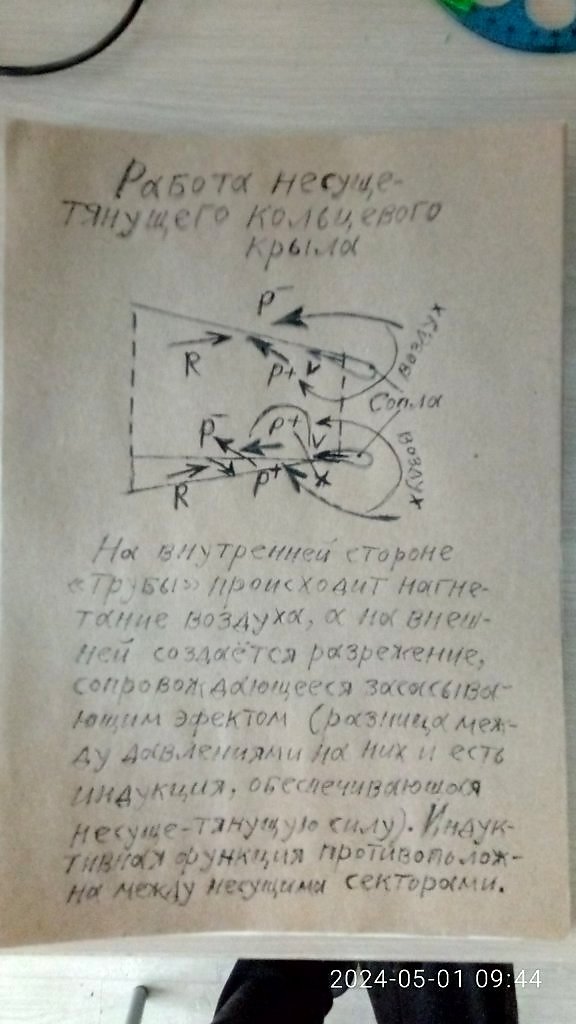 Работа несуще-
тянущего кольцевого
крыла
P⁻
R
P+
V
воздух
Сопла
P⁻
P+
V
воздух
R
P+
X
На внутренней стороне
«трубы» происходит нагне-
тание воздуха, а на внеш-
ней создаётся разрежение,
сопровождающееся засасыва-
ющим эфектом (разница меж-
ду давлениями на них и есть
индукция, обеспечивающая
несуще-тянущую силу). Индук-
тивная функция противополож-
на между несущими секторами.
2024-05-01 09:44